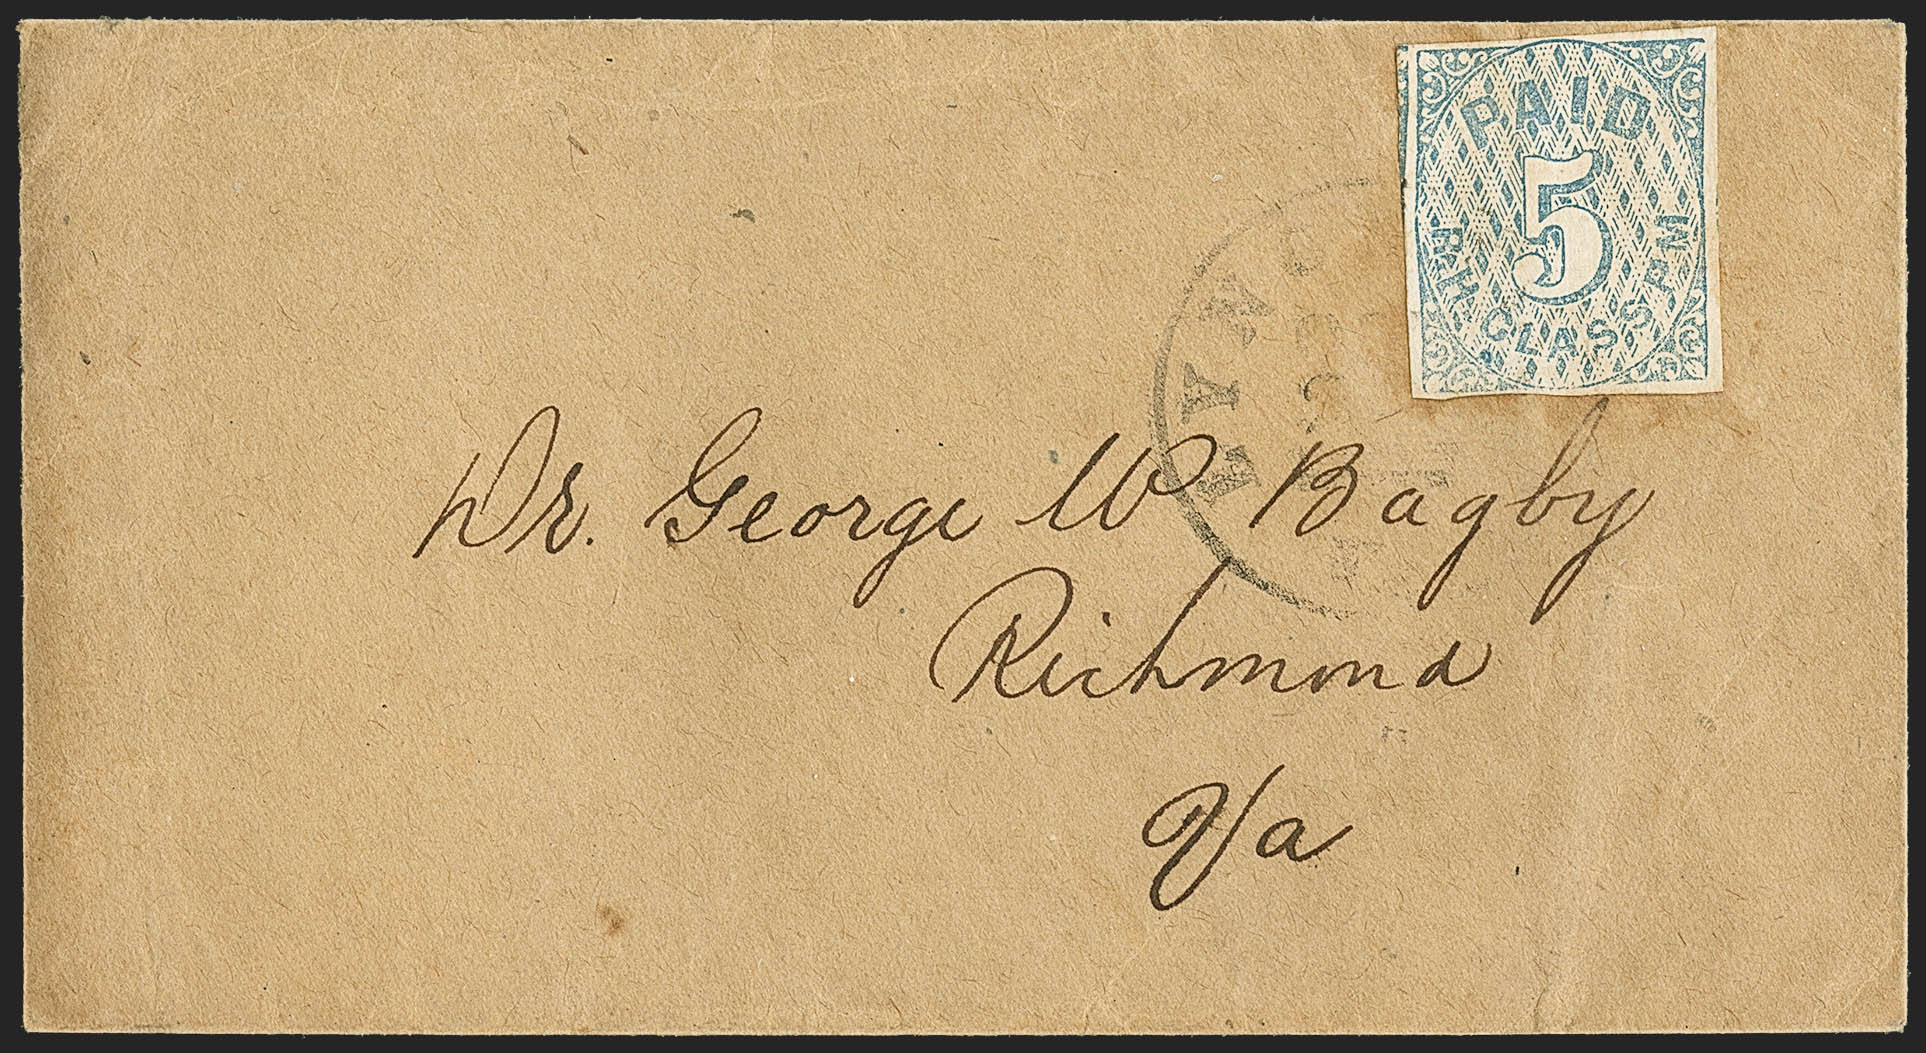 PAID
5
R.H. GLASS. P.M.
Dr. George W Bagby
Richmond
Va